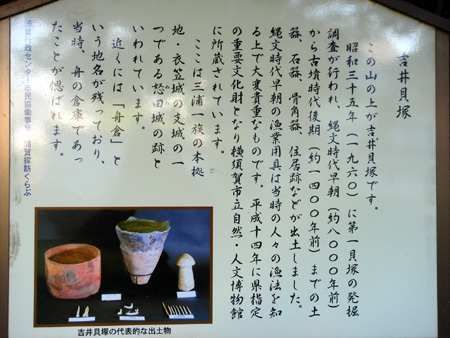 吉井貝塚
この山の上が吉井貝塚です。
昭和三十五年（一九六〇）に第一貝塚の発掘
調査が行われ、縄文時代早期（約八〇〇〇年前）
から古墳時代後期（約一四〇〇年前）までの土
器、石器、骨角器、住居跡などが出土しました。
縄文時代早期の漁業用具は当時の人々の漁法を知
る上で大変貴重なものです。平成十四年に県指定
の重要文化財となり横須賀市立自然・人文博物館
に所蔵されています。
ここは三浦一族の本拠
地・衣笠城の支城の一
つである怒田城の跡と
いわれています。
近くには「舟倉」と
いう地名が残っており、
当時、舟の倉庫であっ
たことが偲ばれます。
吉井貝塚の代表的な出土物